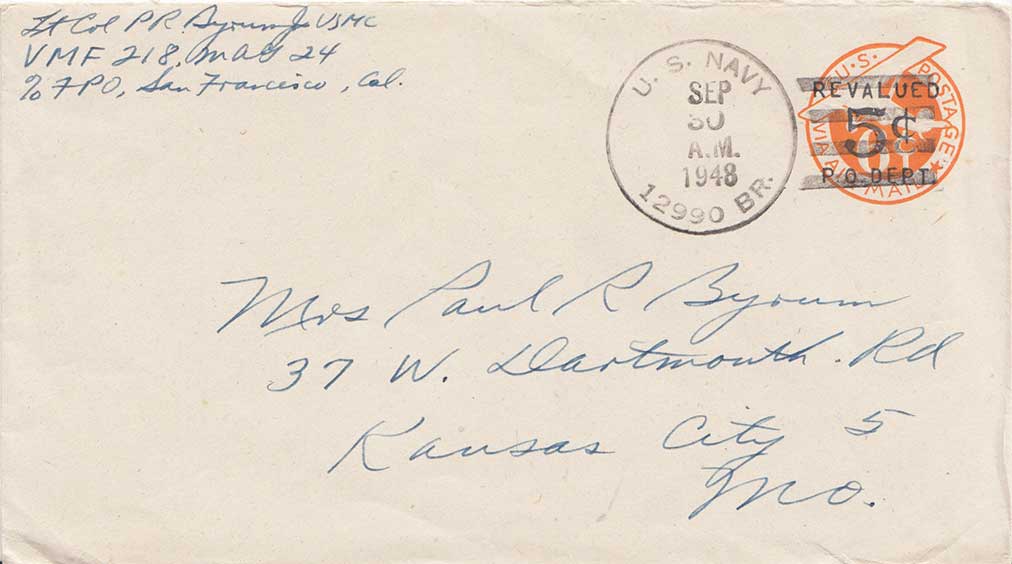 Lt Col P R. Byrum Jr USMC
VMF 218, MAG 24
c/o FPO, San Francisco, Cal.
U. S. NAVY
SEP
30
A.M.
1948
12990 BR.
U.S. POSTAGE
REVALUED
5¢
P.O. DEPT.
VIA AIR MAIL
Mrs Paul R Byrum
37 W. Dartmouth Rd
Kansas City 5
Mo.